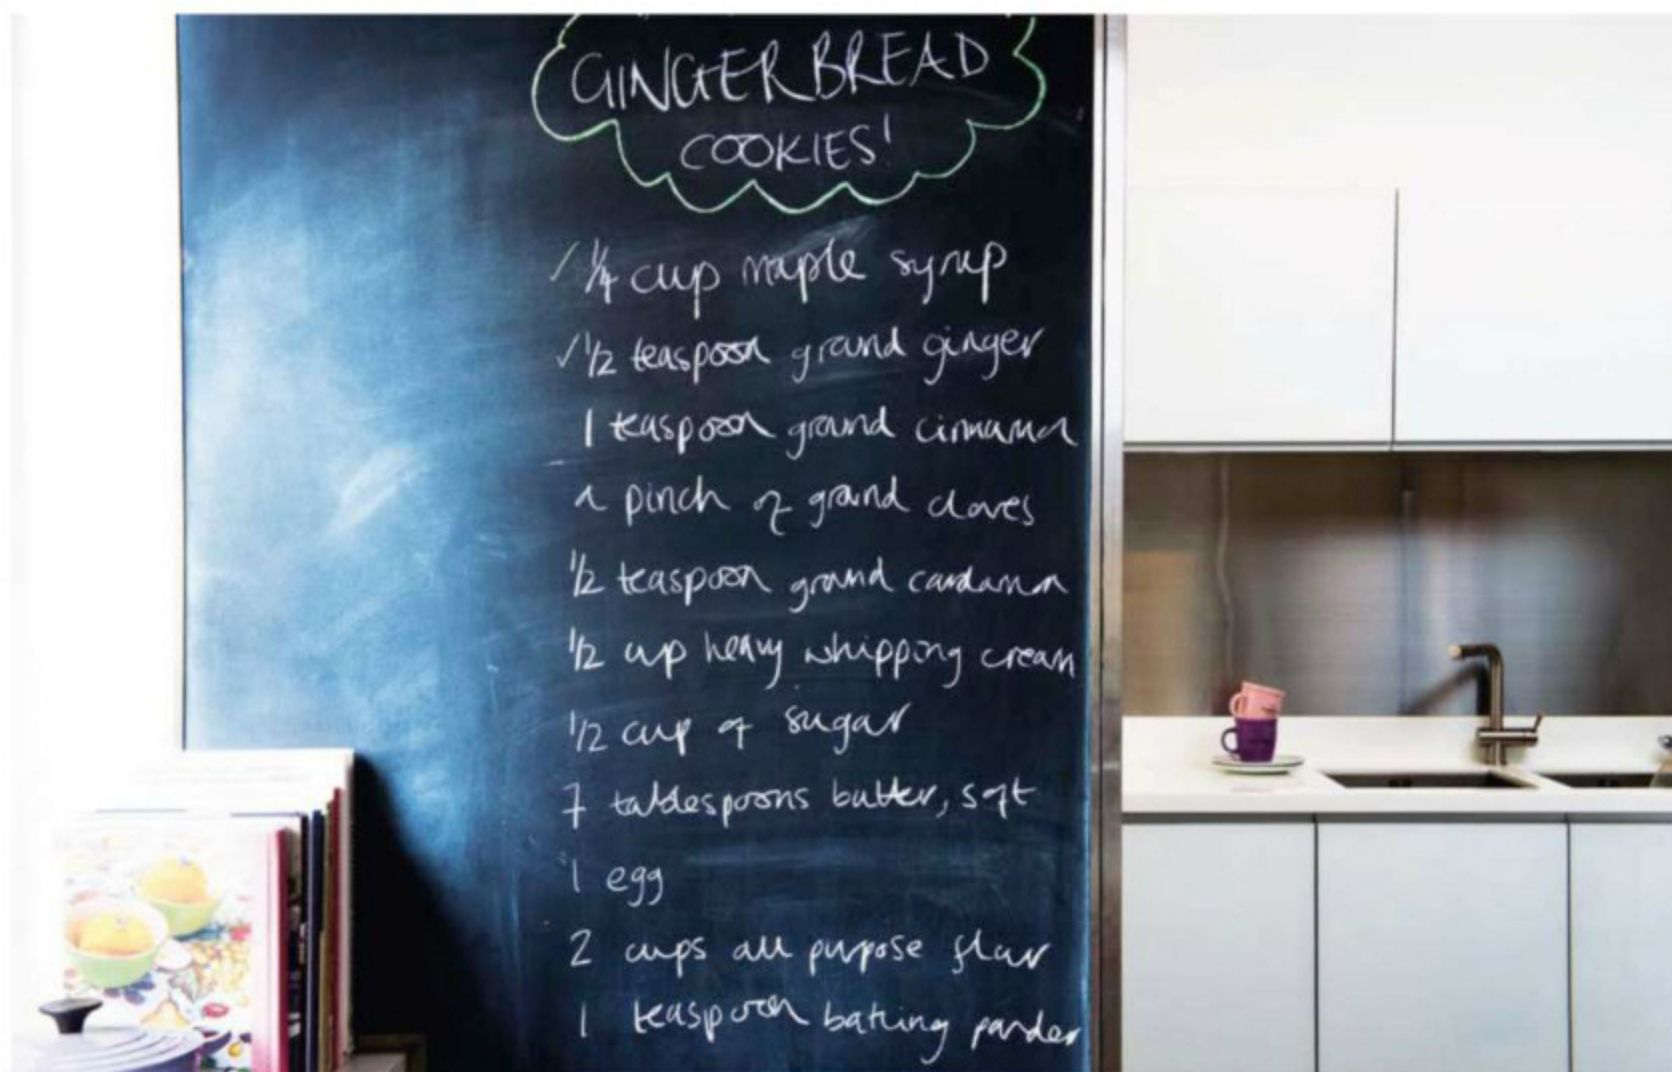 GINGERBREAD
COOKIES!
✓ 1/4 cup maple syrup
✓ 1/2 teaspoon ground ginger
1 teaspoon ground cinnamon
a pinch of ground cloves
1/2 teaspoon ground cardamon
1/2 cup heavy whipping cream
1/2 cup of sugar
7 tablespoons butter, soft
1 egg
2 cups all purpose flour
1 teaspoon baking powder